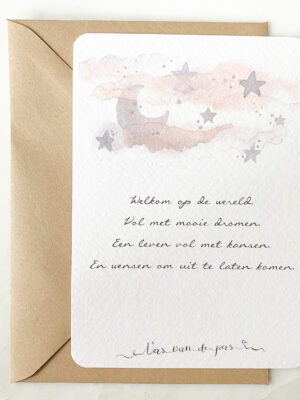 Welkom op de wereld.
Vol met mooie dromen.
Een leven vol met kansen.
En wensen om uit te laten komen.
van de pers